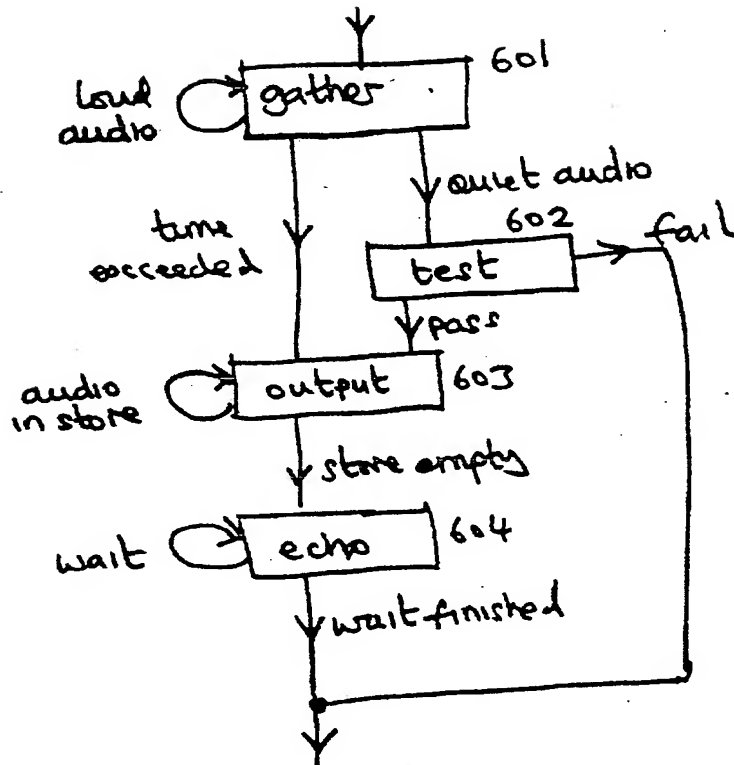 601
loud
audio
gather
quiet audio
602
fail
time
exceeded
test
pass
audio
in store
output
603
store empty
wait
echo
604
wait finished